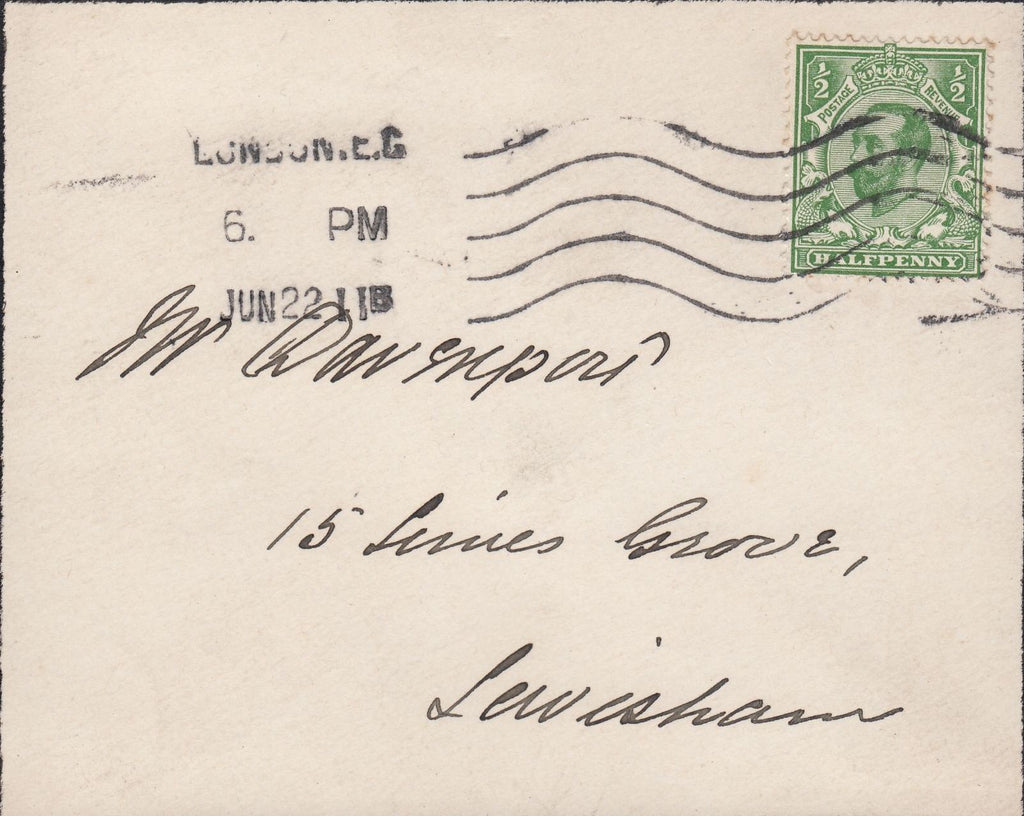 ½ ½
POSTAGE REVENUE
LONDON.E.C
6. PM
JUN 22 11
HALFPENNY
Mr Davenport
15 Limes Grove,
Lewisham